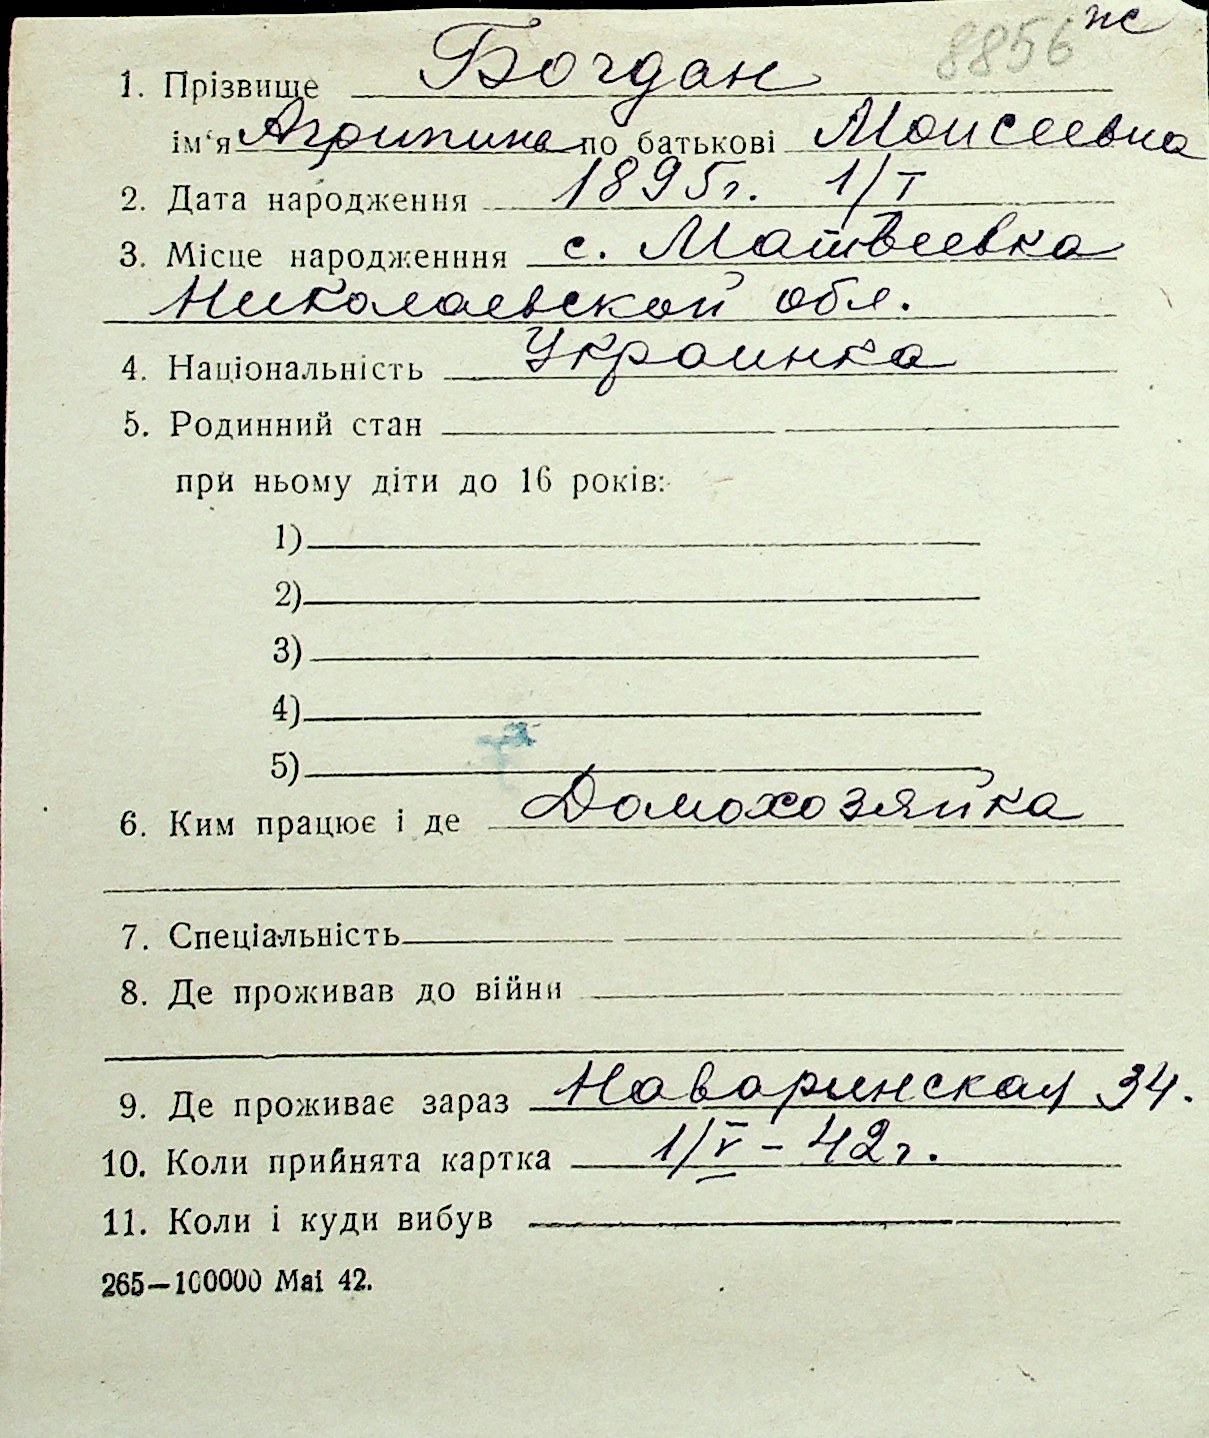 8856 ж
1. Прізвище Богдан
ім'я Агрипина по батькові Моисеевна
2. Дата народження 1895г. 1/I
3. Місце народженння с. Матвеевка
Николаевской обл.
4. Національність Украинка
5. Родинний стан
при ньому діти до 16 років:
1)
2)
3)
4)
5)
6. Ким працює і де Домохозяйка
7. Спеціальність
8. Де проживав до війни
9. Де проживає зараз Наваринская 34.
10. Коли прийнята картка 1/V - 42г.
11. Коли і куди вибув
265—100000 Mai 42.